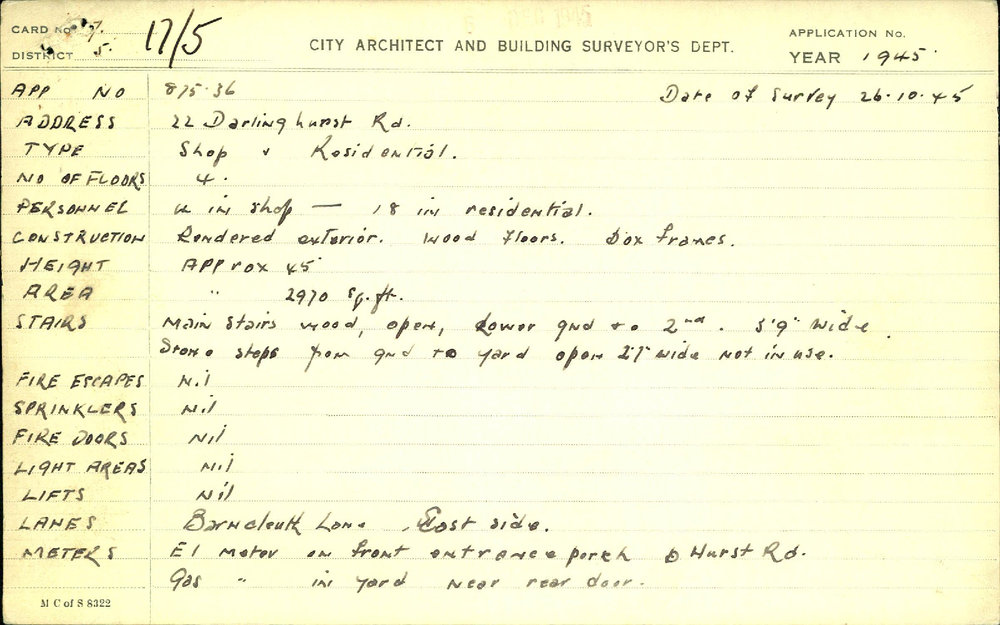 CARD NO. 7.
17/5
DISTRICT 5.
CITY ARCHITECT AND BUILDING SURVEYOR'S DEPT.
APPLICATION No.
YEAR 1945
APP NO 875.36 Date of Survey 26.10.45
ADDRESS 22 Darlinghurst Rd.
TYPE Shop & Residential.
NO OF FLOORS 4.
PERSONNEL 4 in shop — 18 in residential.
CONSTRUCTION Rendered exterior. Wood floors. Box frames.
HEIGHT APProx 45'
AREA " 2970 sq.ft.
STAIRS Main Stairs wood, open, Lower gnd to 2nd. 3'9" wide
Stone steps from gnd to yard open 2'7" wide not in use.
FIRE ESCAPES Nil
SPRINKLERS Nil
FIRE DOORS Nil
LIGHT AREAS Nil
LIFTS Nil
LANES Barncleuth Lane East side.
METERS El Meter on front entrance porch D Hurst Rd.
Gas " in yard near rear door.
M C of S 8322